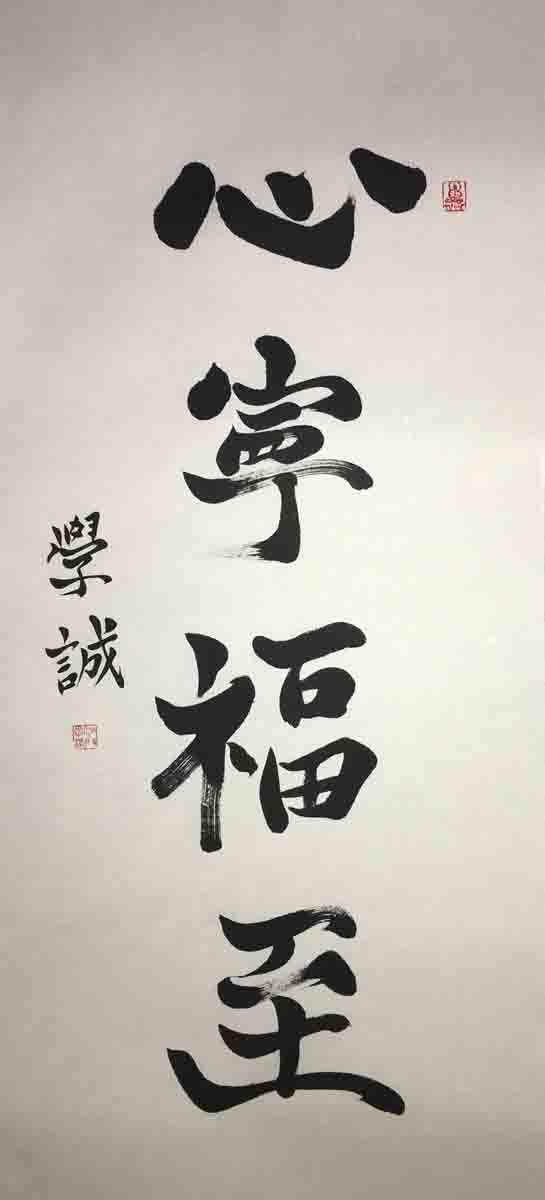 心寧福至
學誠